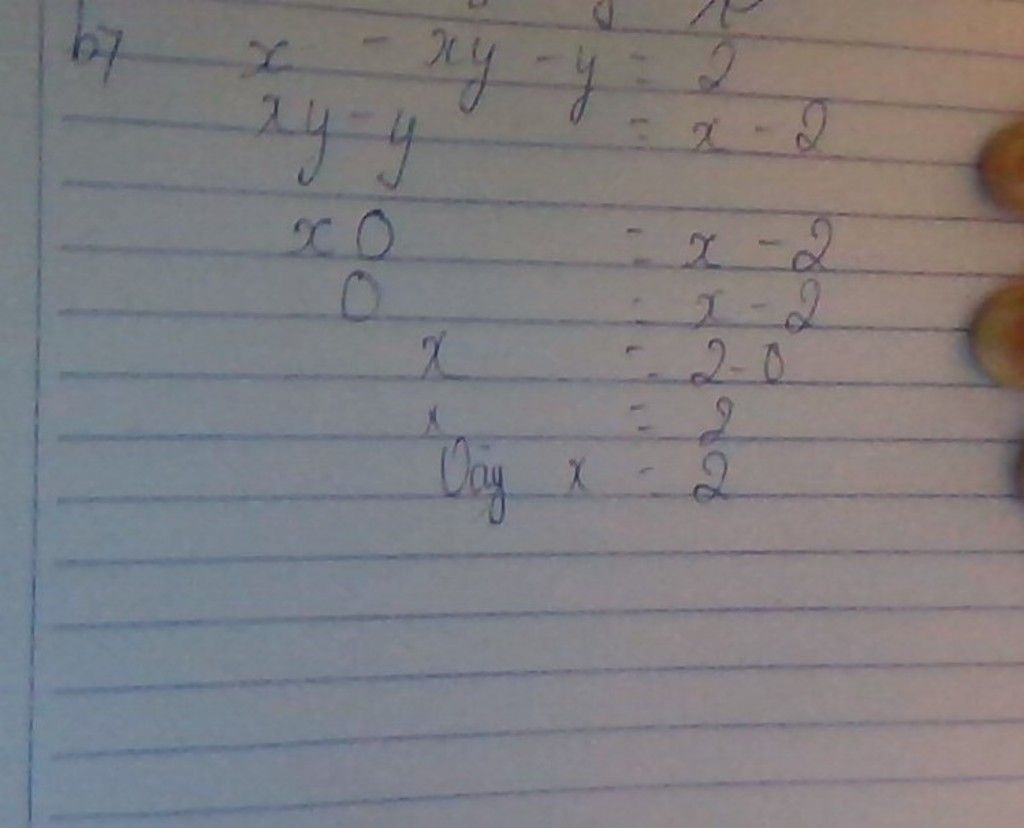 b7 x - xy - y = 2
xy - y = x - 2
x0 = x - 2
0 = x - 2
x = 2 - 0
x = 2
Vậy x = 2